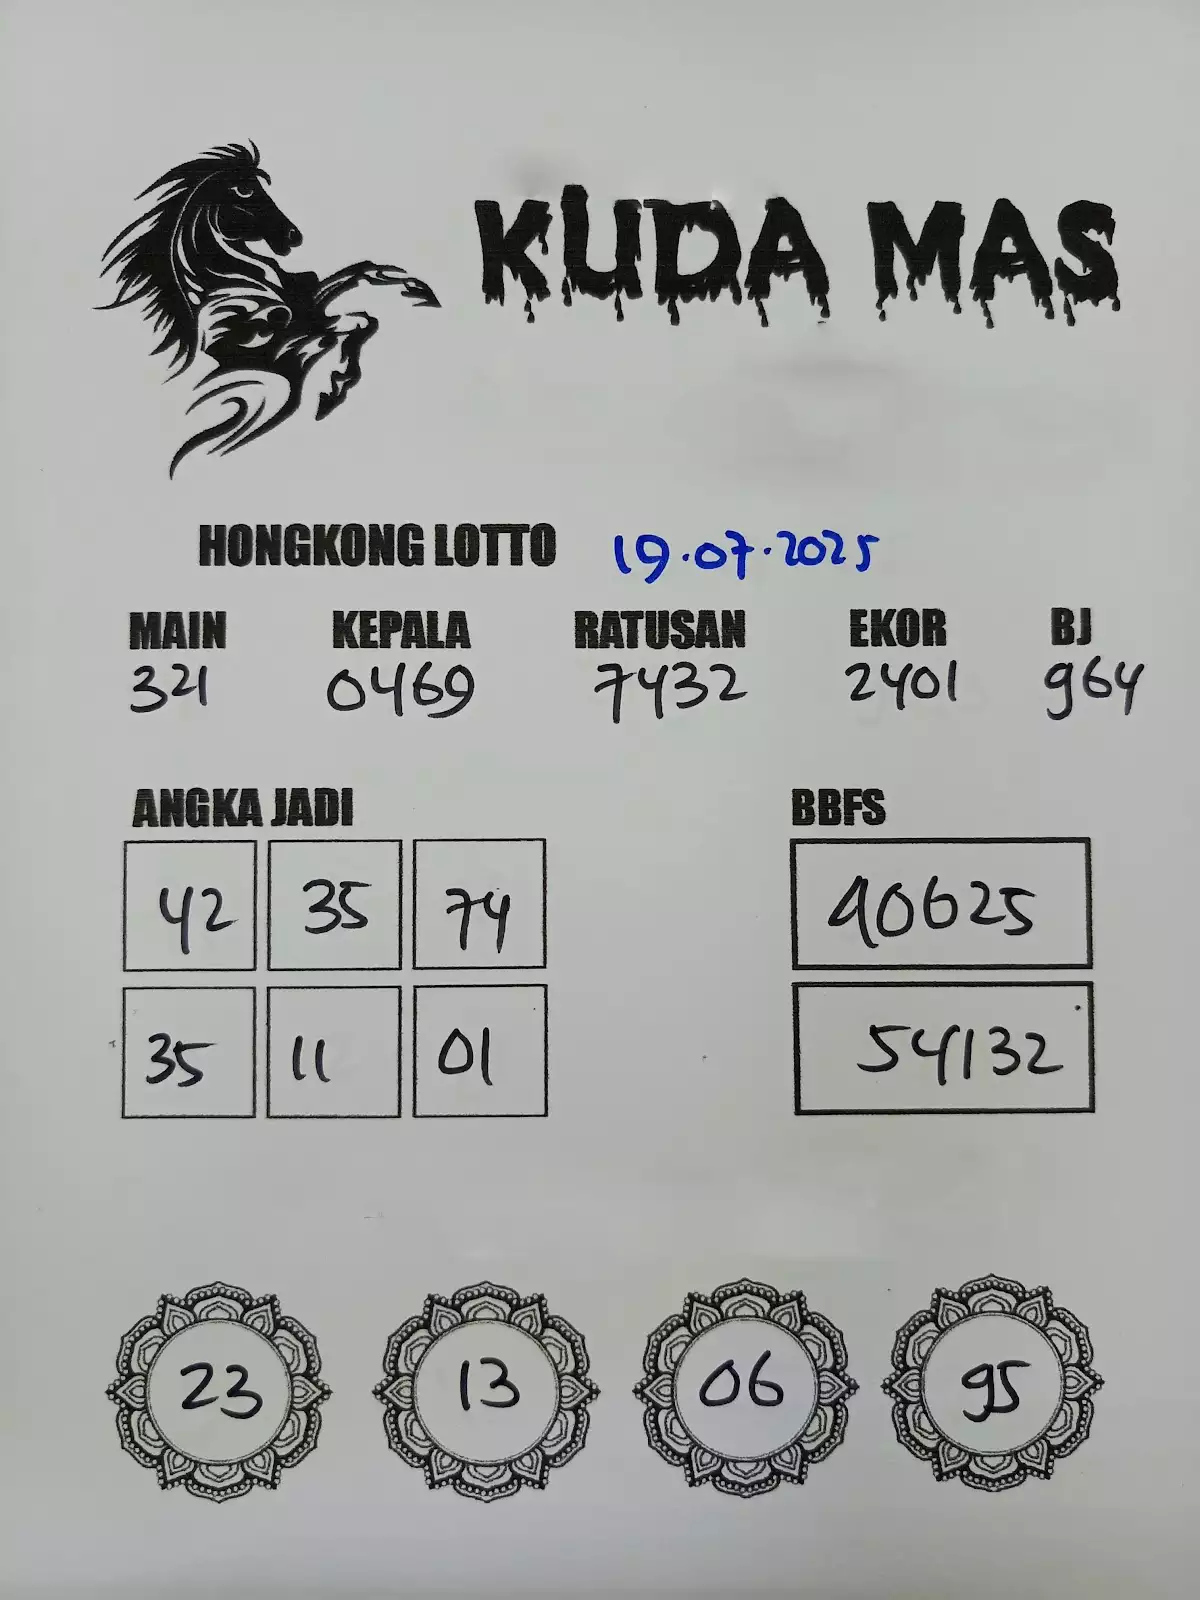 KUDA MAS
HONGKONG LOTTO 19.07.2025
MAIN KEPALA RATUSAN EKOR BJ
321 0469 7432 2401 964
ANGKA JADI BBFS
42 35 74 90625
35 11 01 54132
23 13 06 95